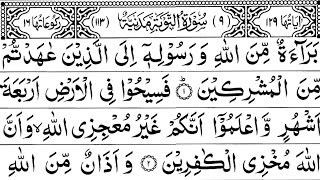 اٰیاتھا ١٢٩ (٩) سُوْرَةُ التَّوْبَةِ مَدَنِیَّةٌ (١١٣) رکوعاتھا ١٦
بَرَآءَةٌ مِّنَ اللّٰهِ وَ رَسُوْلِهٖۤ اِلَى الَّذِیْنَ عٰهَدْتُّمْ
مِّنَ الْمُشْرِكِیْنَ ۞ فَسِیْحُوْا فِی الْاَرْضِ اَرْبَعَةَ
اَشْهُرٍ وَّ اعْلَمُوْۤا اَنَّكُمْ غَیْرُ مُعْجِزِی اللّٰهِ ۙ وَ اَنَّ
اللّٰهَ مُخْزِی الْكٰفِرِیْنَ ۞ وَ اَذَانٌ مِّنَ اللّٰهِ